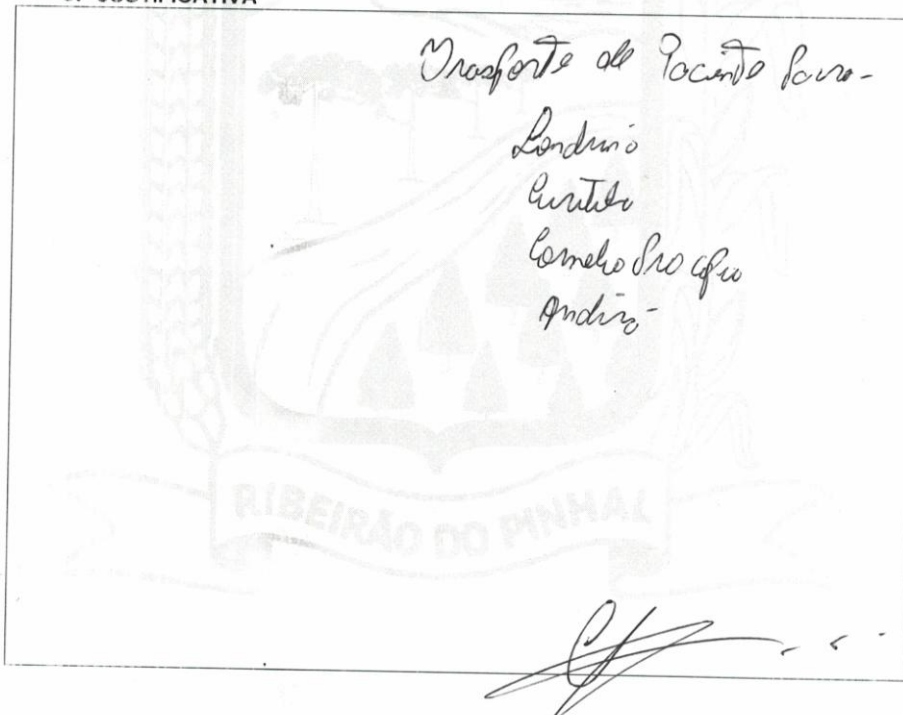 JUSTIFICATIVA
Trasporte de Paciente Para-
Londrina
Curitiba
Cornelio Procopio
Andira-
RIBEIRÃO DO PINHAL